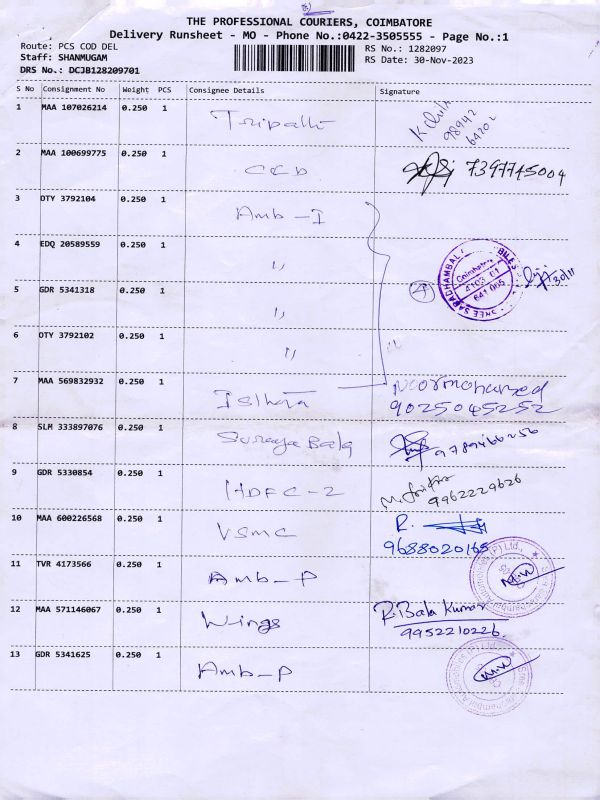 THE PROFESSIONAL COURIERS, COIMBATORE
Delivery Runsheet - MO - Phone No.:0422-3505555 - Page No.:1
Route: PCS COD DEL
Staff: SHANMUGAM
DRS No.: DCJB128209701
RS No.: 1282097
RS Date: 30-Nov-2023
S No Consignment No Weight PCS Consignee Details Signature
1 MAA 107026214 0.250 1 Tripathi
98942
64202
2 MAA 100699775 0.250 1 CCD 7397745004
3 OTY 3792104 0.250 1 Amb - I
4 EDQ 20589559 0.250 1 ,, 4 30/11
Coimbatore
641 005
5 GDR 5341318 0.250 1 ,,
6 OTY 3792102 0.250 1 ,,
7 MAA 569832932 0.250 1 Ishara Noormohamed
9025045252
8 SLM 333897076 0.250 1 Suraya Bala 9789466256
9 GDR 5330854 0.250 1 HDFC - 2
9962229626
10 MAA 600226568 0.250 1 VSMC R.
9688020165
11 TVR 4173566 0.250 1 Amb - P
12 MAA 571146067 0.250 1 Wings R. Bala Kumar
9952210226.
13 GDR 5341625 0.250 1 Amb - P